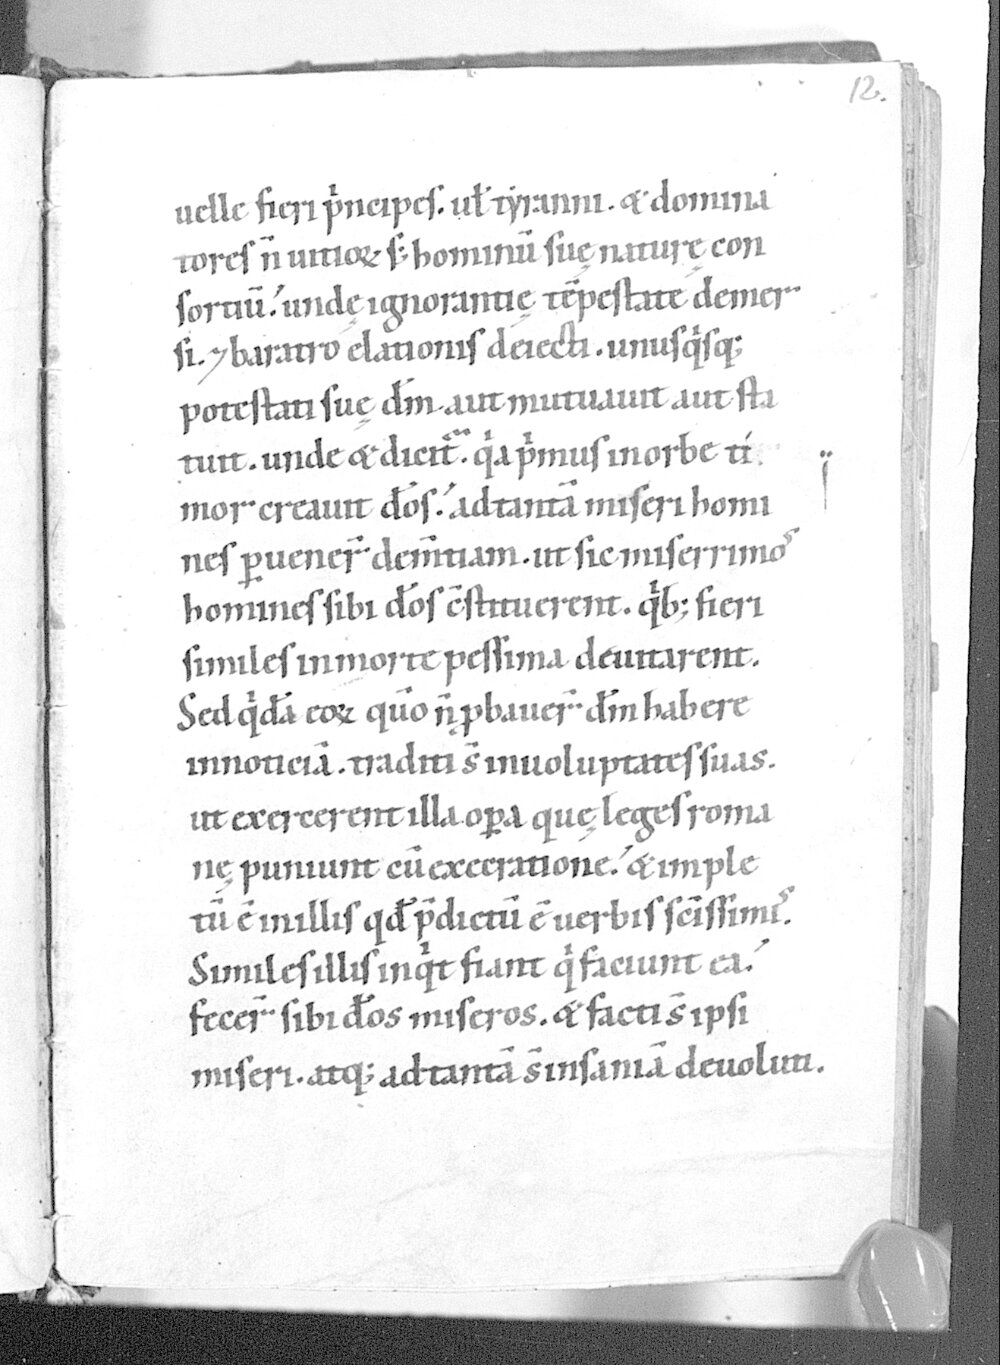 12.
uelle fieri p͛ncipeſ. ul̄ tyranni. & domina
toreſ n̄ uitioꝝ ſ; hominū ſuę naturę con
ſortiū. undę ignorantię tēpeſtate demer
ſi. ⁊ baratro elationiſ deiecti. unuſq͛ſq;
poteſtati ſuę dm̄ aut mutuauit aut ſta
tuit. unde & dicit᷑. q͛a p͛muſ in orbe ti
mor creauit do̅ſ. ad tantā miſeri homi
neſ ꝑuener̄ dem̄tiam. ut ſic miſerrimoſ
homineſ ſibi do̅ſ c̄ſtituerent. q͛b; fieri
ſimileſ in morte peſſima deuitarent.
Sed q͛dā eoꝝ quō n̄ ꝓbauer̄ dm̄ habere
in noticiā. traditi s̄ in uoluptateſ ſuaſ.
ut exercerent illa oꝑa quę legeſ roma
nę puniunt cū execratione. & imple
tū ē in illiſ qd̄ p̄dictū ē uerbiſ ſc̄iſſimiſ.
Simileſ illiſ inq͛t fiant q͛ faciunt ea.
fecer̄ ſibi do̅s miſeros. & facti s̄ ipſi
miſeri. atq; ad tantā s̄ inſaniā deuoluti.